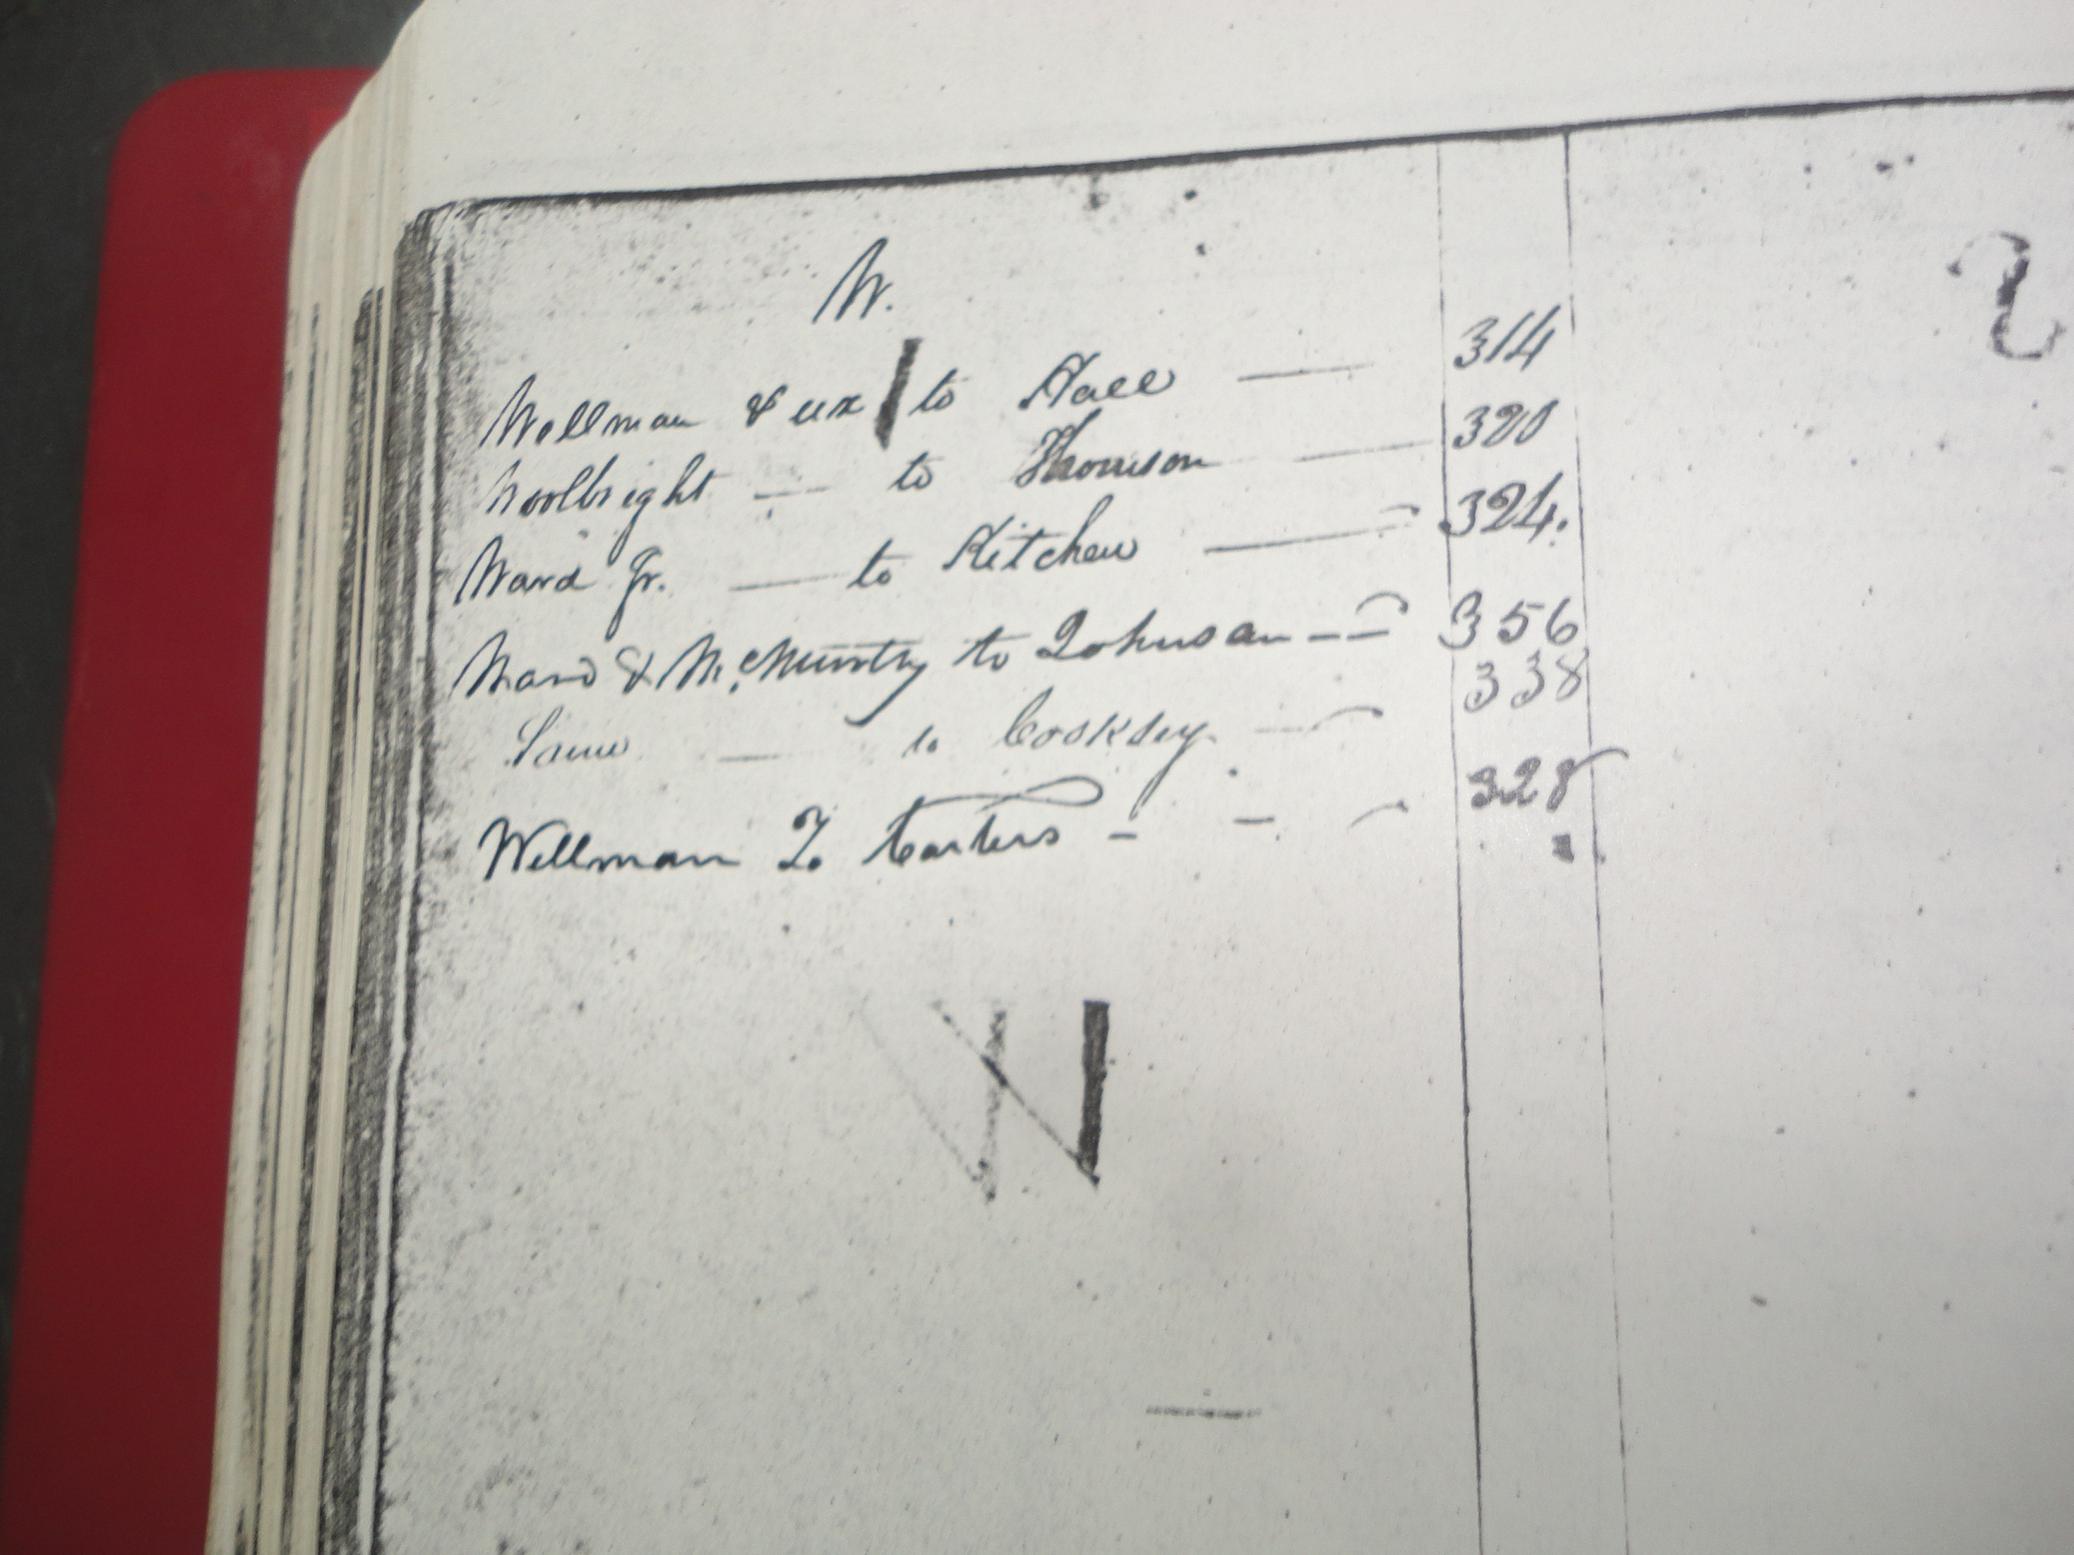 W.
Wellman & ux to Hall — 314
Woolbright — to Thomison — 320
Ward Jr. — to Kitchen — 324.
Ward & McMurtry to Johnson -- 356
Same — to Cooksey — 338
Wellman To Carters - - 328
W